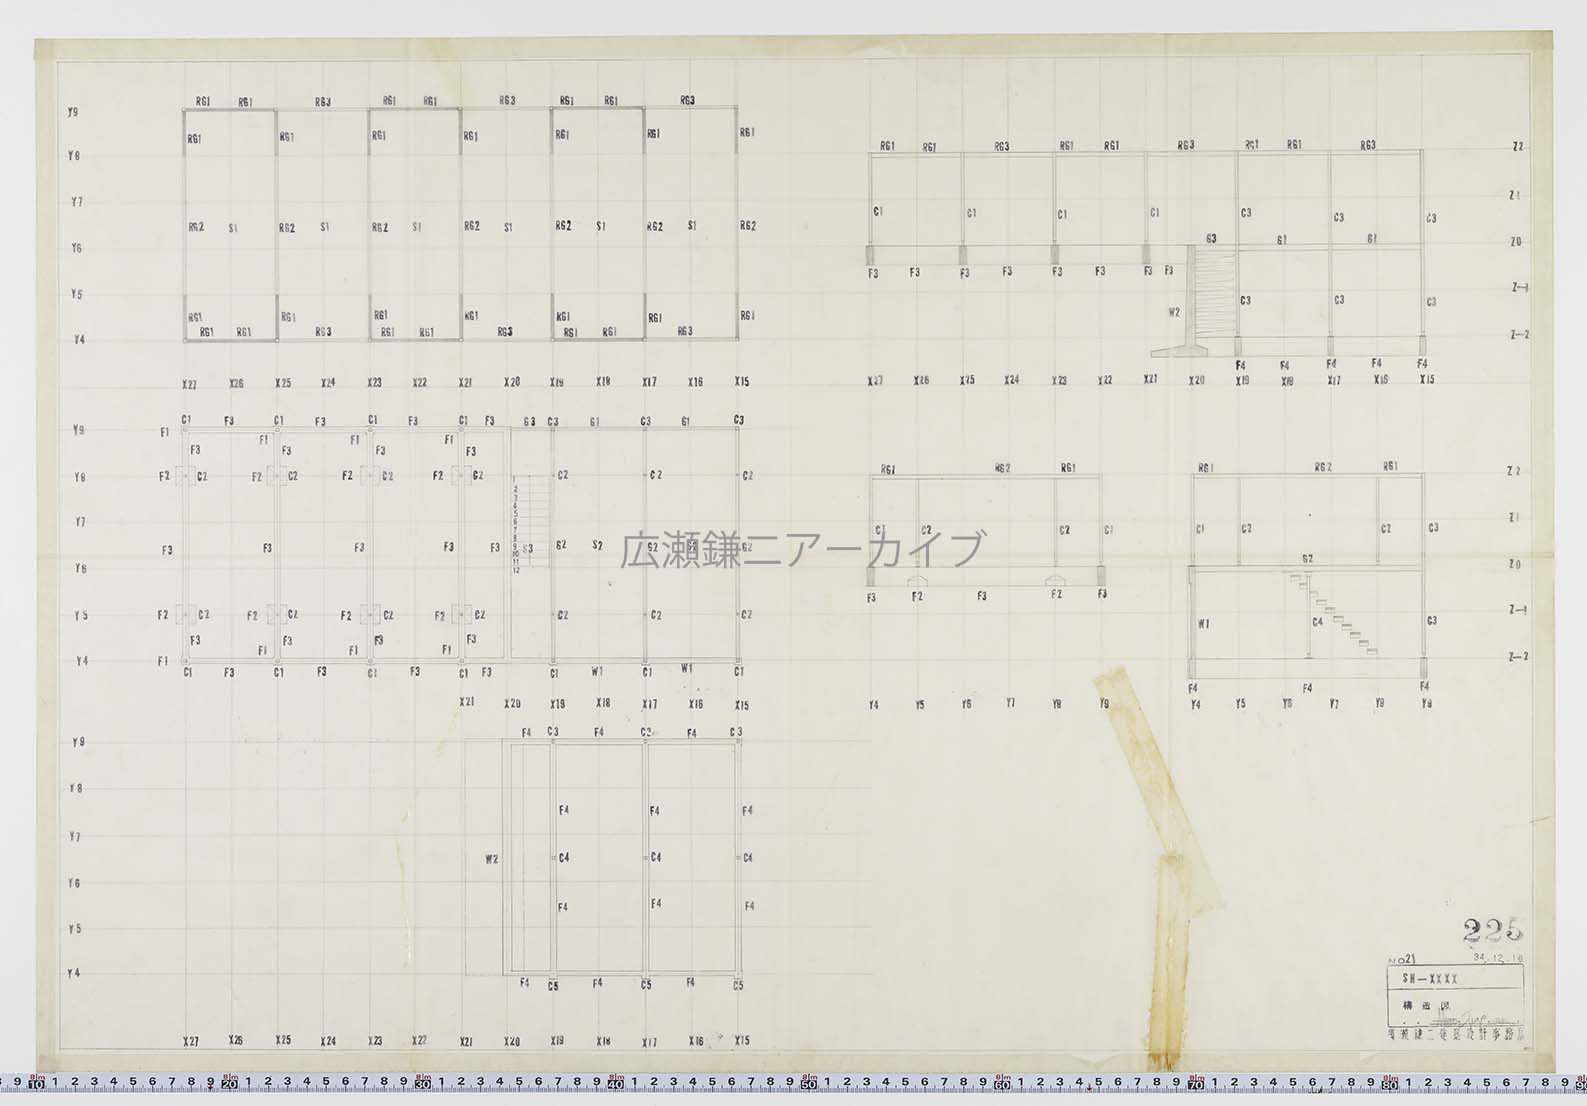 RG1 RG1 RG3 RG1 RG1 RG3 RG1 RG1 RG3
Y9
RG1 RG1 RG1 RG1 RG1 RG1 RG1
Y8
Y7
RG2 S1 RG2 S1 RG2 S1 RG2 S1 RG2 S1 RG2 S1 RG2
Y6
Y5
RG1 RG1 RG1 RG1 RG1 RG1 RG1
RG1 RG1 RG3 RG1 RG1 RG3 RG1 RG1 RG3
Y4
X27 X26 X25 X24 X23 X22 X21 X20 X19 X18 X17 X16 X15
C1 F3 C1 F3 C1 F3 C1 F3 G3 C3 G1 C3 G1 C3
Y9 F1 F1 F1 F1
F3 F3 F3 F3
Y8 F2 C2 F2 C2 F2 C2 F2 C2 C2 C2 C2
1
2
3
4
5
6
7
8
9
10
11
12
Y7
F3 F3 F3 F3 F3 S3 G2 S2 G2 S2 G2
Y6
Y5 F2 C2 F2 C2 F2 C2 F2 C2 C2 C2 C2
F3 F3 F3 F3
F1 F1 F1
Y4 F1
C1 F3 C1 F3 C1 F3 C1 F3 C1 W1 C1 W1 C1
X21 X20 X19 X18 X17 X16 X15
F4 C3 F4 C3 F4 C3
Y9
Y8
Y7 F4 F4 F4
W2 C4 C4 C4
Y6
F4 F4 F4
Y5
Y4
F4 C5 F4 C5 F4 C5
X27 X26 X25 X24 X23 X22 X21 X20 X19 X18 X17 X16 X15
RG1 RG1 RG3 RG1 RG1 RG3 RG1 RG1 RG3 Z2
Z1
C1 C1 C1 C1 C3 C3 C3
G3 G1 G1 Z0
F3 F3 F3 F3 F3 F3 F3 F3
Z-1
W2 C3 C3 C3
Z-2
F4 F4 F4 F4 F4
X27 X26 X25 X24 X23 X22 X21 X20 X19 X18 X17 X16 X15
RG1 RG2 RG1 RG1 RG2 RG1 Z2
Z1
C1 C2 C2 C1 C1 C2 C2 C3
G2 Z0
F3 F2 F3 F2 F3
Z-1
W1 C4 C3
Z-2
F4 F4 F4
Y4 Y5 Y6 Y7 Y8 Y9 Y4 Y5 Y6 Y7 Y8 Y9
広瀬鎌二アーカイブ
225
NO21 34.12.18
SH-XXXX
構造図
広瀬鎌二建築設計事務所